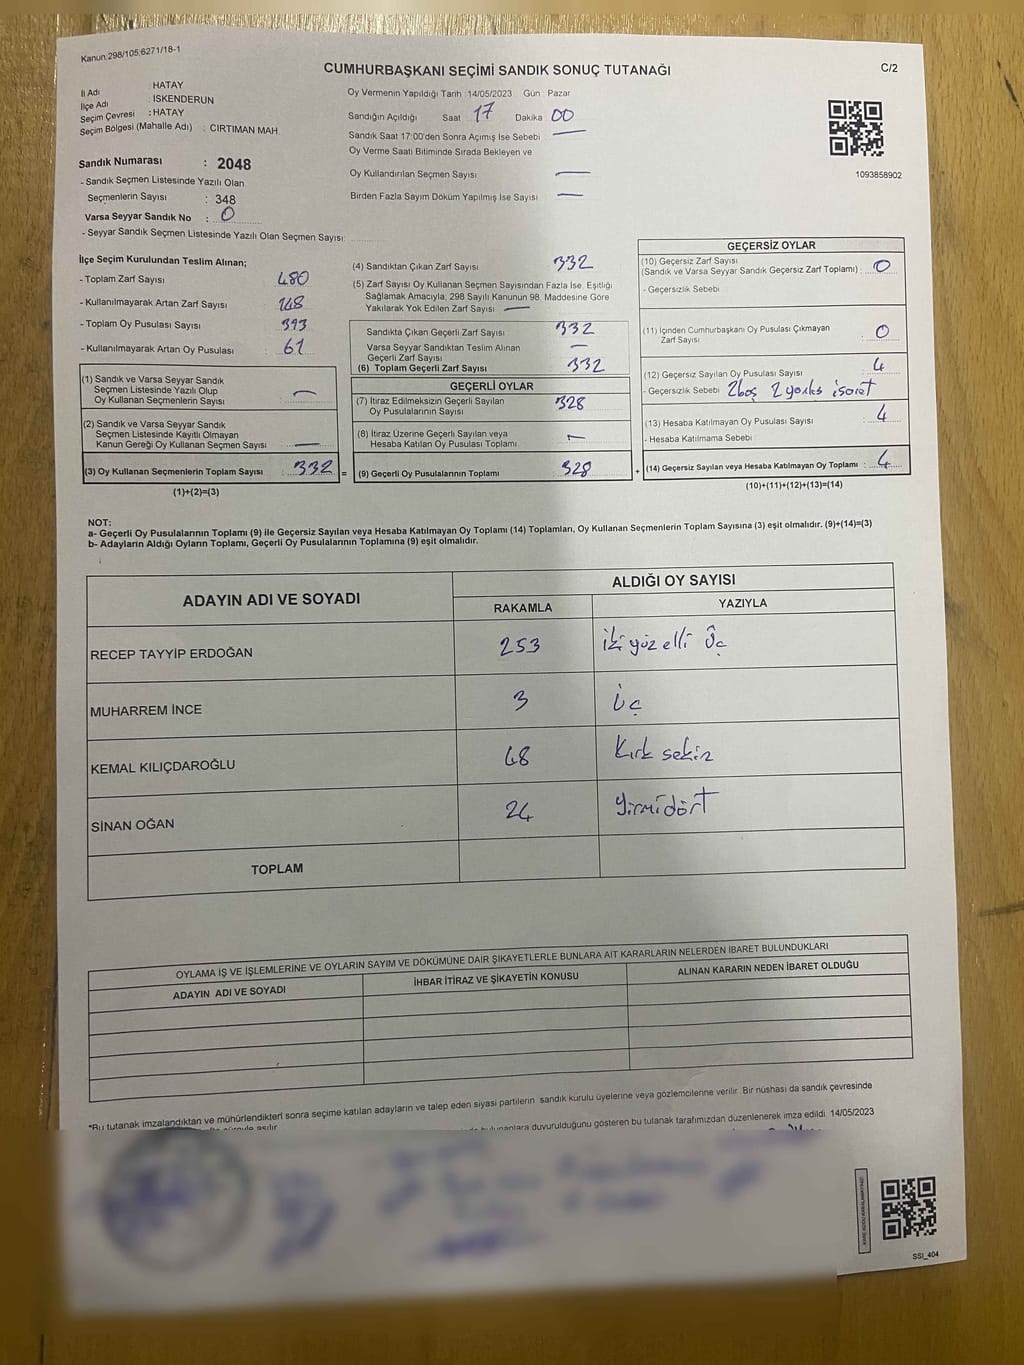 Kanun:298/105;6271/18-1
CUMHURBAŞKANI SEÇİMİ SANDIK SONUÇ TUTANAĞI
C/2
İl Adı HATAY
İlçe Adı : ISKENDERUN
Seçim Çevresi : HATAY
Seçim Bölgesi (Mahalle Adı) : CIRTIMAN MAH.
Sandık Numarası : 2048
- Sandık Seçmen Listesinde Yazılı Olan
Seçmenlerin Sayısı : 348
Varsa Seyyar Sandık No : 0
- Seyyar Sandık Seçmen Listesinde Yazılı Olan Seçmen Sayısı:
Oy Vermenin Yapıldığı Tarih : 14/05/2023 Gün : Pazar
Sandığın Açıldığı Saat 17 Dakika 00
Sandık Saat 17:00'den Sonra Açımış İse Sebebi —
Oy Verme Saati Bitiminde Sırada Bekleyen ve
Oy Kullandırılan Seçmen Sayısı —
Birden Fazla Sayım Döküm Yapılmış İse Sayısı —
1093858902
İlçe Seçim Kurulundan Teslim Alınan;
- Toplam Zarf Sayısı : 480
- Kullanılmayarak Artan Zarf Sayısı : 148
- Toplam Oy Pusulası Sayısı : 393
- Kullanılmayarak Artan Oy Pusulası : 61
(1) Sandık ve Varsa Seyyar Sandık
Seçmen Listesinde Yazılı Olup
Oy Kullanan Seçmenlerin Sayısı : —
(2) Sandık ve Varsa Seyyar Sandık
Seçmen Listesinde Kayıtlı Olmayan
Kanun Gereği Oy Kullanan Seçmen Sayısı —
(3) Oy Kullanan Seçmenlerin Toplam Sayısı : 332 =
(1)+(2)=(3)
(4) Sandıktan Çıkan Zarf Sayısı : 332
(5) Zarf Sayısı Oy Kullanan Seçmen Sayısından Fazla İse, Eşitliği
Sağlamak Amacıyla, 298 Sayılı Kanunun 98. Maddesine Göre
Yakılarak Yok Edilen Zarf Sayısı : —
Sandıkta Çıkan Geçerli Zarf Sayısı : 332
Varsa Seyyar Sandıktan Teslim Alınan
Geçerli Zarf Sayısı —
(6) Toplam Geçerli Zarf Sayısı : 332
GEÇERLİ OYLAR
(7) İtiraz Edilmeksizin Geçerli Sayılan
Oy Pusulalarının Sayısı : 328
(8) İtiraz Üzerine Geçerli Sayılan veya
Hesaba Katılan Oy Pusulası Toplamı : —
(9) Geçerli Oy Pusulalarının Toplamı : 328 +
GEÇERSİZ OYLAR
(10) Geçersiz Zarf Sayısı
(Sandık ve Varsa Seyyar Sandık Geçersiz Zarf Toplamı) : 0
- Geçersizlik Sebebi
(11) İçinden Cumhurbaşkanı Oy Pusulası Çıkmayan
Zarf Sayısı : 0
(12) Geçersiz Sayılan Oy Pusulası Sayısı : 4
- Geçersizlik Sebebi 2 boş 2 yanlış işaret
(13) Hesaba Katılmayan Oy Pusulası Sayısı : 4
- Hesaba Katılmama Sebebi
(14) Geçersiz Sayılan veya Hesaba Katılmayan Oy Toplamı : 4
(10)+(11)+(12)+(13)=(14)
NOT:
a- Geçerli Oy Pusulalarının Toplamı (9) ile Geçersiz Sayılan veya Hesaba Katılmayan Oy Toplamı (14) Toplamları, Oy Kullanan Seçmenlerin Toplam Sayısına (3) eşit olmalıdır. (9)+(14)=(3)
b- Adayların Aldığı Oyların Toplamı, Geçerli Oy Pusulalarının Toplamına (9) eşit olmalıdır.
ADAYIN ADI VE SOYADI
ALDIĞI OY SAYISI
RAKAMLA YAZIYLA
RECEP TAYYİP ERDOĞAN 253 iki yüz elli Üç
MUHARREM İNCE 3 üç
KEMAL KILIÇDAROĞLU 48 Kırk sekiz
SİNAN OĞAN 24 Yirmidört
TOPLAM
OYLAMA İŞ VE İŞLEMLERİNE VE OYLARIN SAYIM VE DÖKÜMÜNE DAİR ŞİKAYETLERLE BUNLARA AİT KARARLARIN NELERDEN İBARET BULUNDUKLARI
ADAYIN ADI VE SOYADI İHBAR İTİRAZ VE ŞİKAYETİN KONUSU ALINAN KARARIN NEDEN İBARET OLDUĞU
*Bu tutanak imzalandıktan ve mühürlendikten sonra seçime katılan adayların ve talep eden siyasi partilerin sandık kurulu üyelerine veya gözlemcilerine verilir. Bir nüshası da sandık çevresinde
asılır. bulunanlara duyurulduğunu gösteren bu tutanak tarafımızdan düzenlenerek imza edildi. 14/05/2023
SSI_404